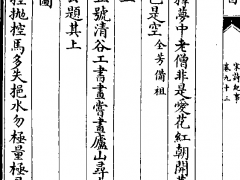 宋詩紀事
卷九十三
夢中老僧非是愛花紅朝開
已是空 全芳備祖
號清谷工書畫嘗畫廬山尋
題其上
圖
拋控馬多失挹水勿極量極